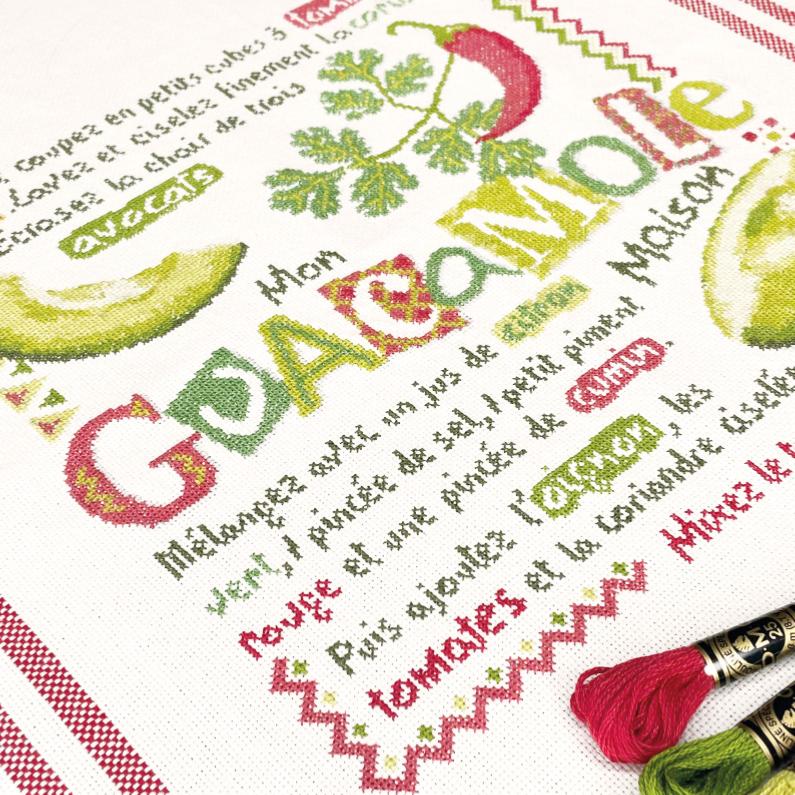 coupez en petits cubes à
Lavez et ciselez finement la
écrasez la chair de trois
avocats
Mon
GUACaMOlle
Maison
Mélangez avec un jus de citron
vert, 1 pincée de sel, 1 petit piment
rouge et une pincée de cumin.
Puis ajoutez l'oignon, les
tomates et la coriandre
Mixez le
DMC
25